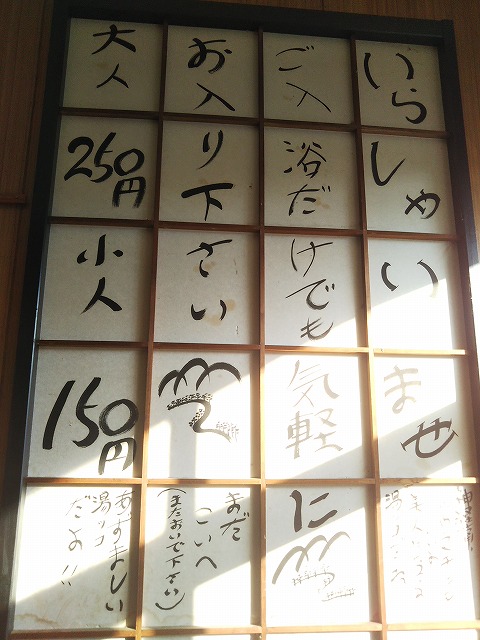 いらしゃいませ
ご入浴だけでも気軽に
お入り下さい
まだ
こいへ
(またおいで下さい)
大人
250円
小人
150円
あずましい
湯ッコ
だの!!